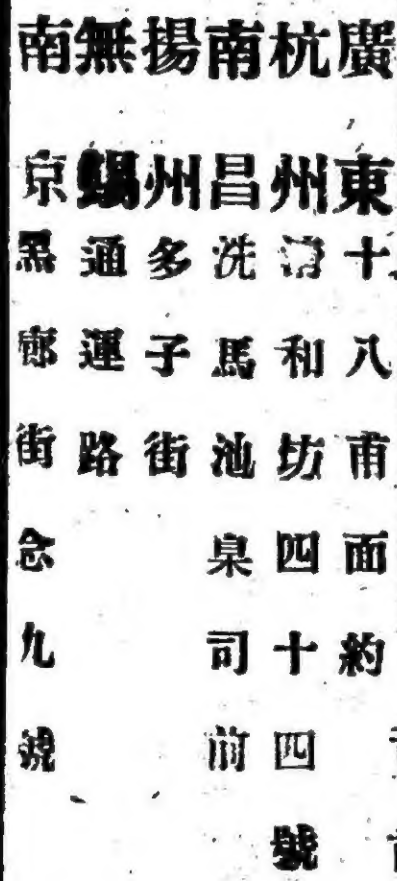 廣東十八甫面約
杭州清和坊四十四號
南昌洗馬池臬司前
揚州多子街
無錫通運路
南京黑廊街念九號